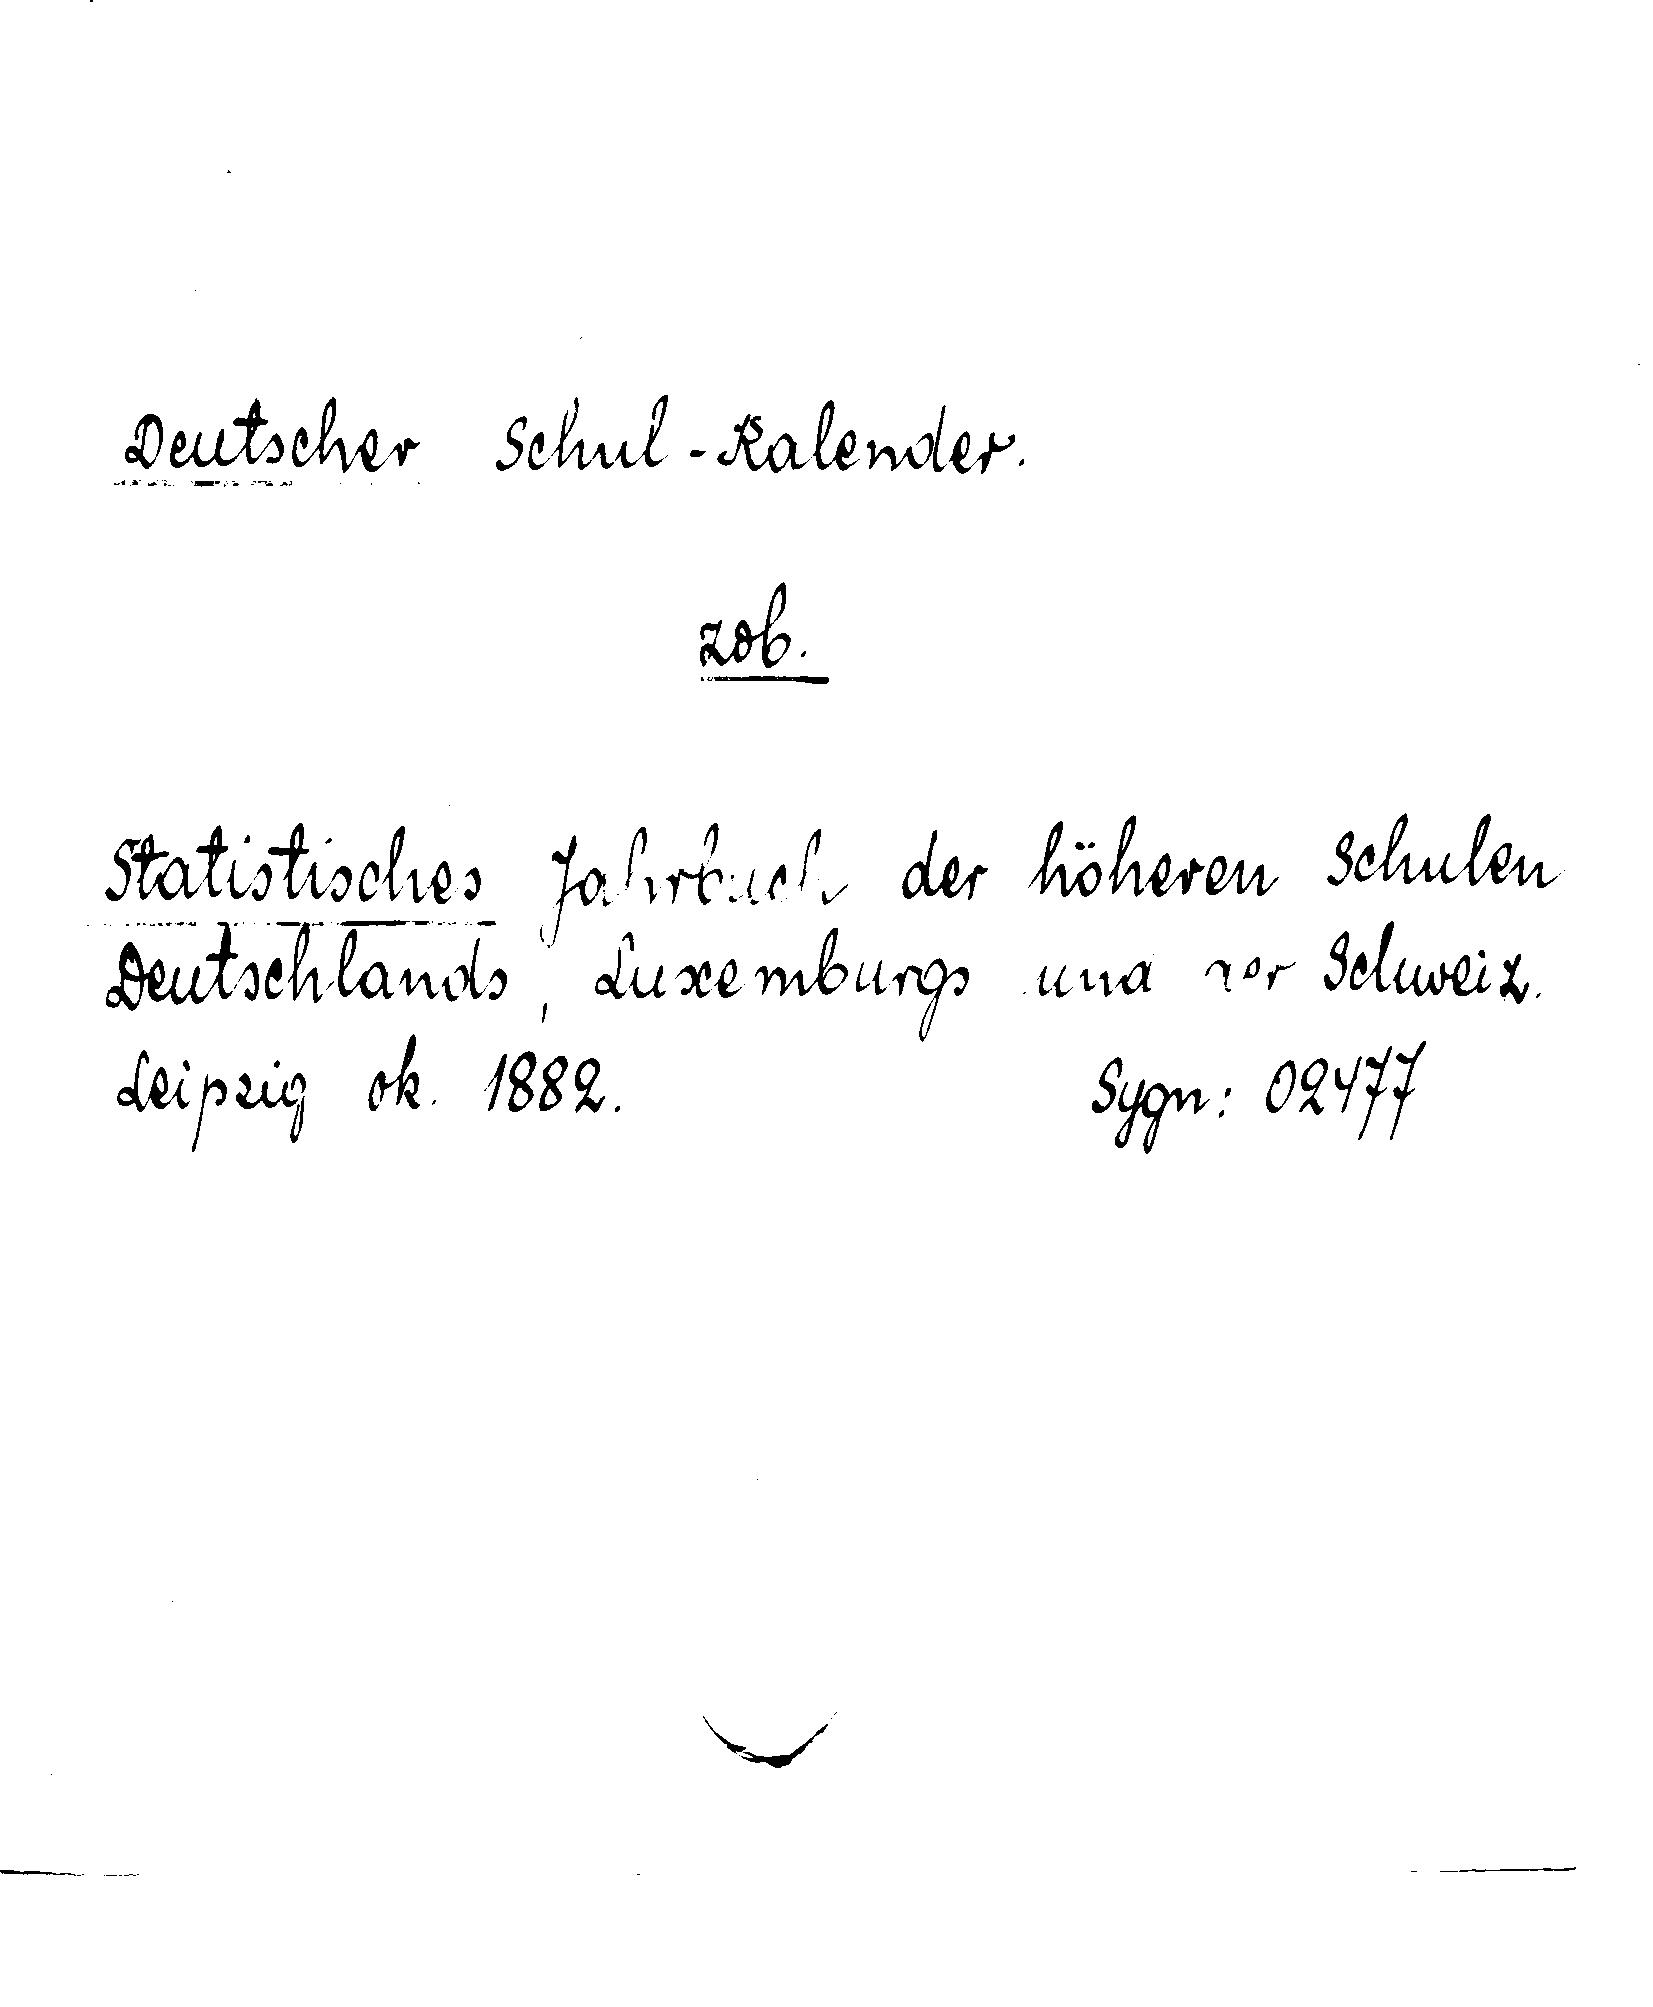 Deutscher Schul-Kalender.
zob.
Statistisches Jahrbuch der höheren Schulen
Deutschlands, Luxemburgs und der Schweiz.
Leipzig ok. 1882. Sygn: 02477